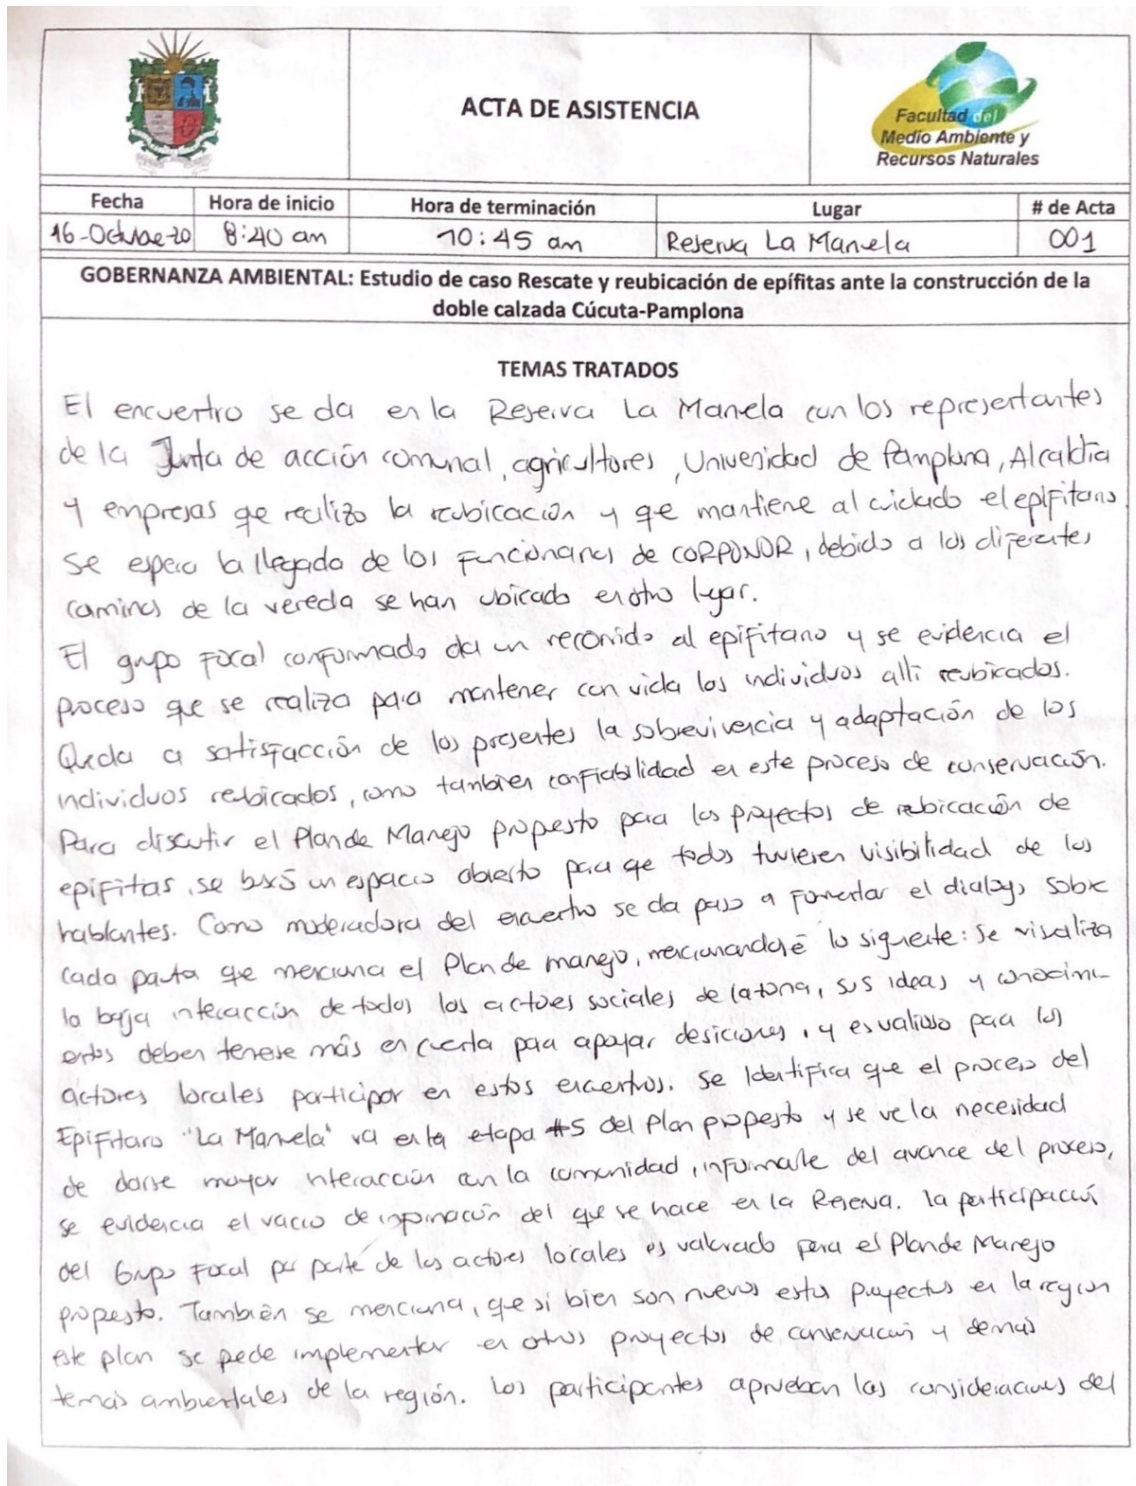 ACTA DE ASISTENCIA
Facultad del
Medio Ambiente y
Recursos Naturales
Fecha Hora de inicio Hora de terminación Lugar # de Acta
16-Octubre-20 8:40 am 10:45 am Reserva La Manuela 001
GOBERNANZA AMBIENTAL: Estudio de caso Rescate y reubicación de epífitas ante la construcción de la
doble calzada Cúcuta-Pamplona
TEMAS TRATADOS
El encuentro se da en la Reserva La Manuela con los representantes
de la Junta de acción comunal, agricultores, Universidad de Pamplona, Alcaldía
y empresas que realizo la reubicación y que mantiene al cuidado el epifitario
se espera la llegada de los funcionarios de CORPONOR, debido a los diferentes
caminos de la vereda se han ubicado en otro lugar.
El grupo focal conformado da un recorrido al epifitario y se evidencia el
proceso que se realiza para mantener con vida los individuos alli reubicados.
Queda a satisfacción de los presentes la sobrevivencia y adaptación de los
individuos reubicados, como tambien confiabilidad en este proceso de conservación.
Para discutir el Plan de Manejo propuesto para los proyectos de reubicación de
epifitas, se buscó un espacio abierto para que todos tuvieren visibilidad de los
hablantes. Como moderadora del encuentro se da paso a fomentar el dialogo sobre
cada pauta que menciona el Plan de manejo, mencionandose lo siguiente: Se visualiza
la baja interacción de todos los actores sociales de la zona, sus ideas y conocimi-
entos deben tenerse más en cuenta para apoyar desiciones, y es valioso para los
actores locales participar en estos encuentros. Se Identifica que el proceso del
Epifitario "La Manuela" va en la etapa #5 del Plan propuesto y se ve la necesidad
de darse mayor interacción con la comunidad, informarle del avance del proceso,
se evidencia el vacio de información del que se hace en la Reserva. la participación
del Grupo Focal por parte de los actores locales es valorado para el Plan de Manejo
propuesto. También se menciona, que si bien son nuevos estos proyectos en la region
este plan se puede implementar en otros proyectos de conservación y demás
temas ambientales de la región. Los participantes aprueban las consideraciones del